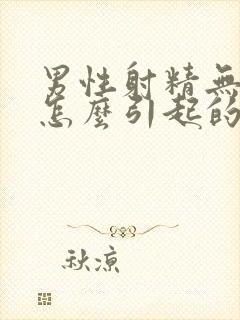 男性射精無
怎麼引起的
秋凉